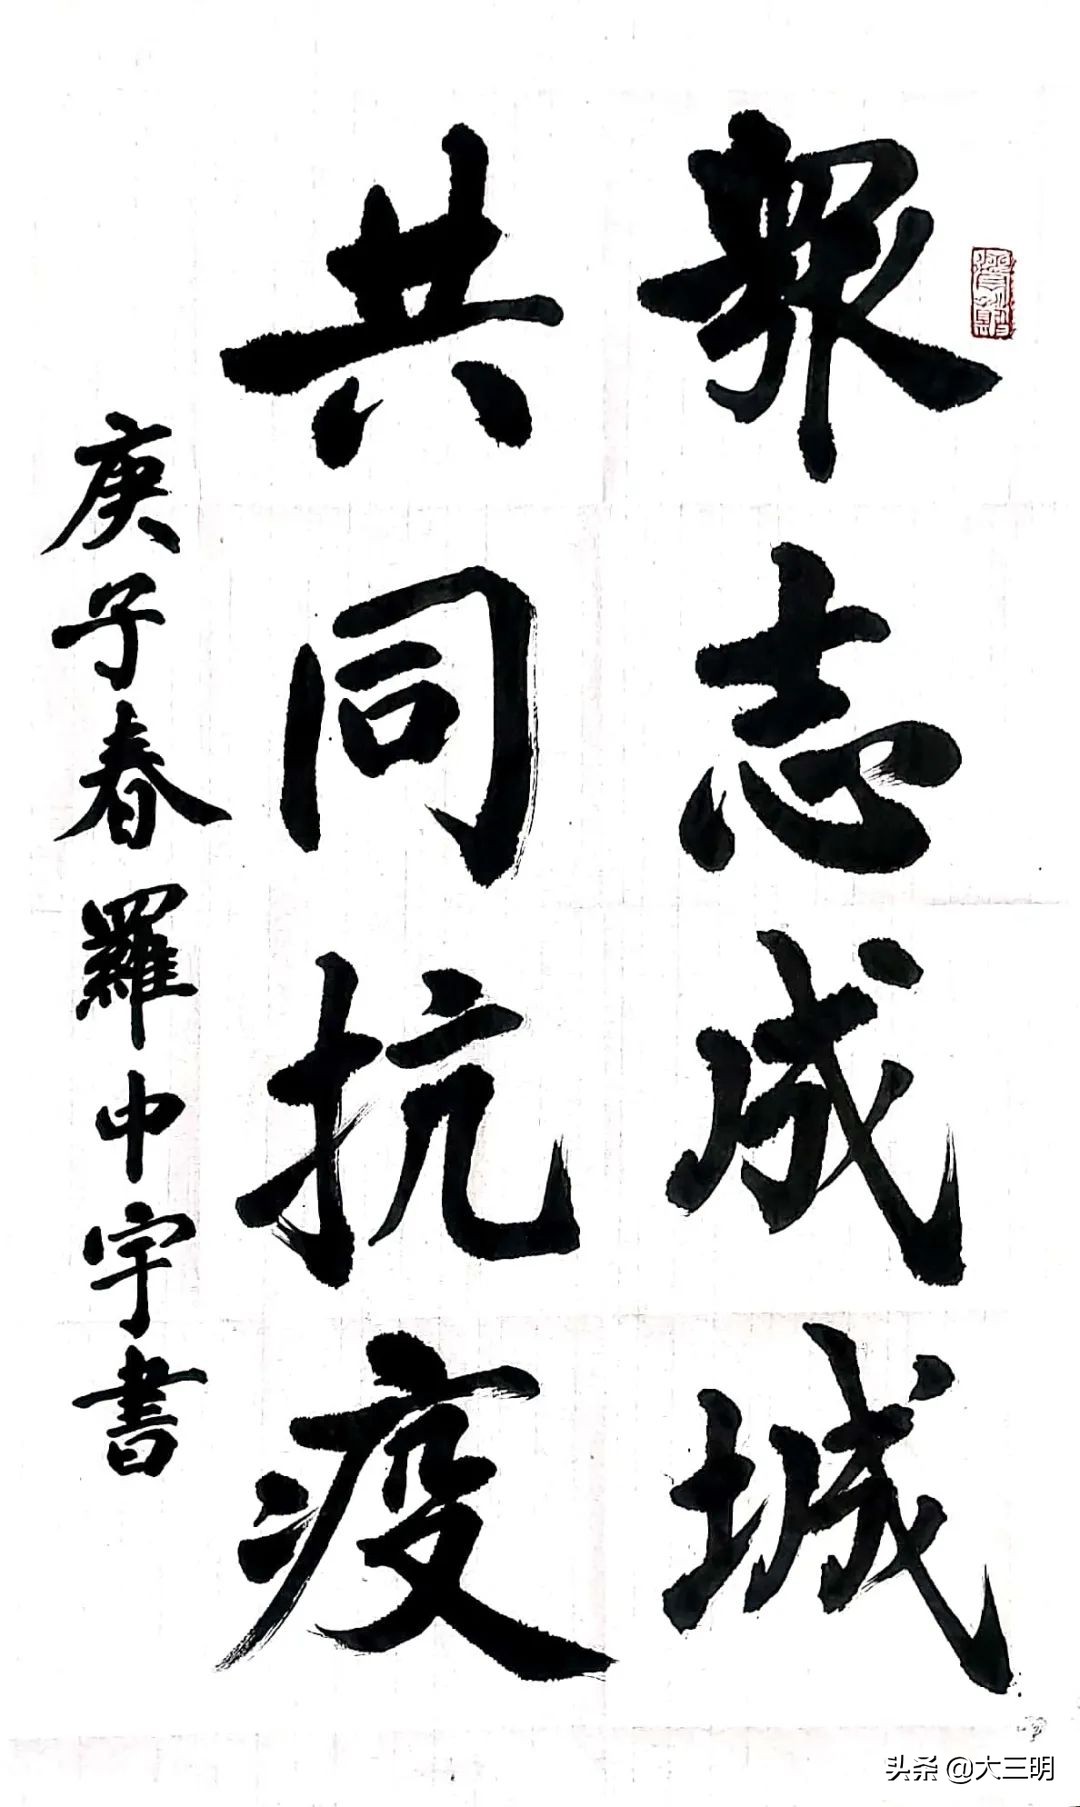 眾志成城
共同抗疫
庚子春羅中宇書
头条 @大三明